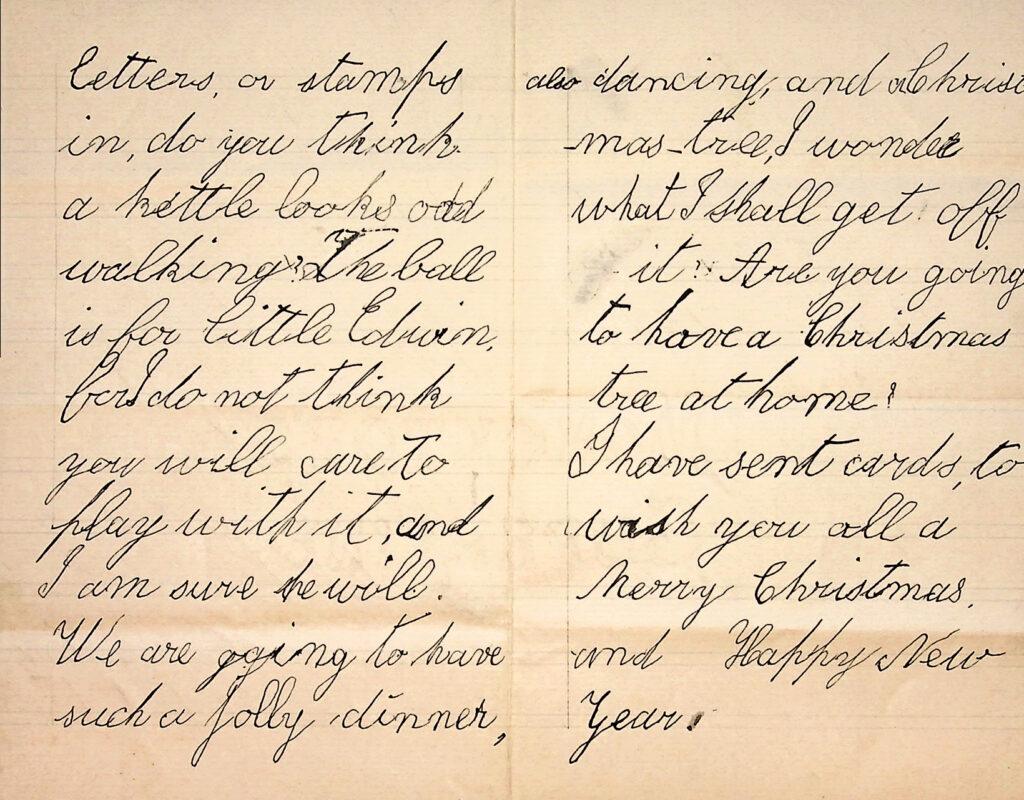 letters, or stamps
in, do you think
a kettle looks odd
walking? The ball
is for little Edwin,
for I do not think
you will care to
play with it, and
I am sure he will.
We are going to have
such a jolly dinner,
also dancing, and a Christ
-mas-tree, I wonder
what I shall get off
it? Are you going
to have a Christmas
tree at home?
I have sent cards, to
wish you all a
Merry Christmas,
and Happy New
Year.